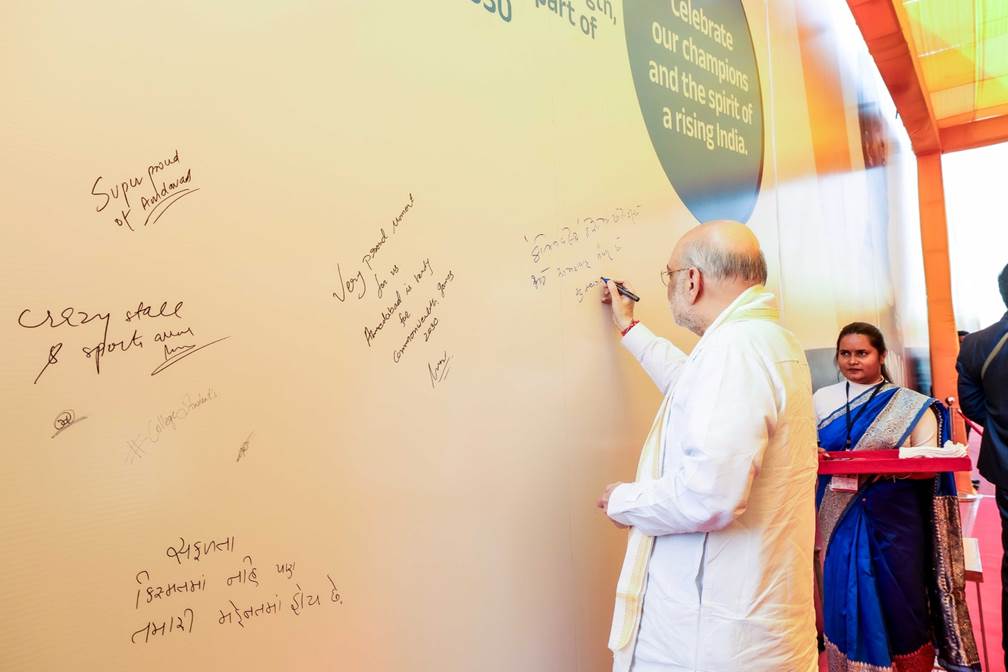 2030
gth,
part of
Celebrate
our champions
and the spirit of
a rising India.
Super proud
of Amdavad
Very proud moment
for us
Ahmedabad is ready
for
Commonwealth games
2030
Crezy stall
& sports
#College Students
સફળતા
કિસ્મતમાં નહિ પણ
તમારી મહેનતમાં હોય છે.